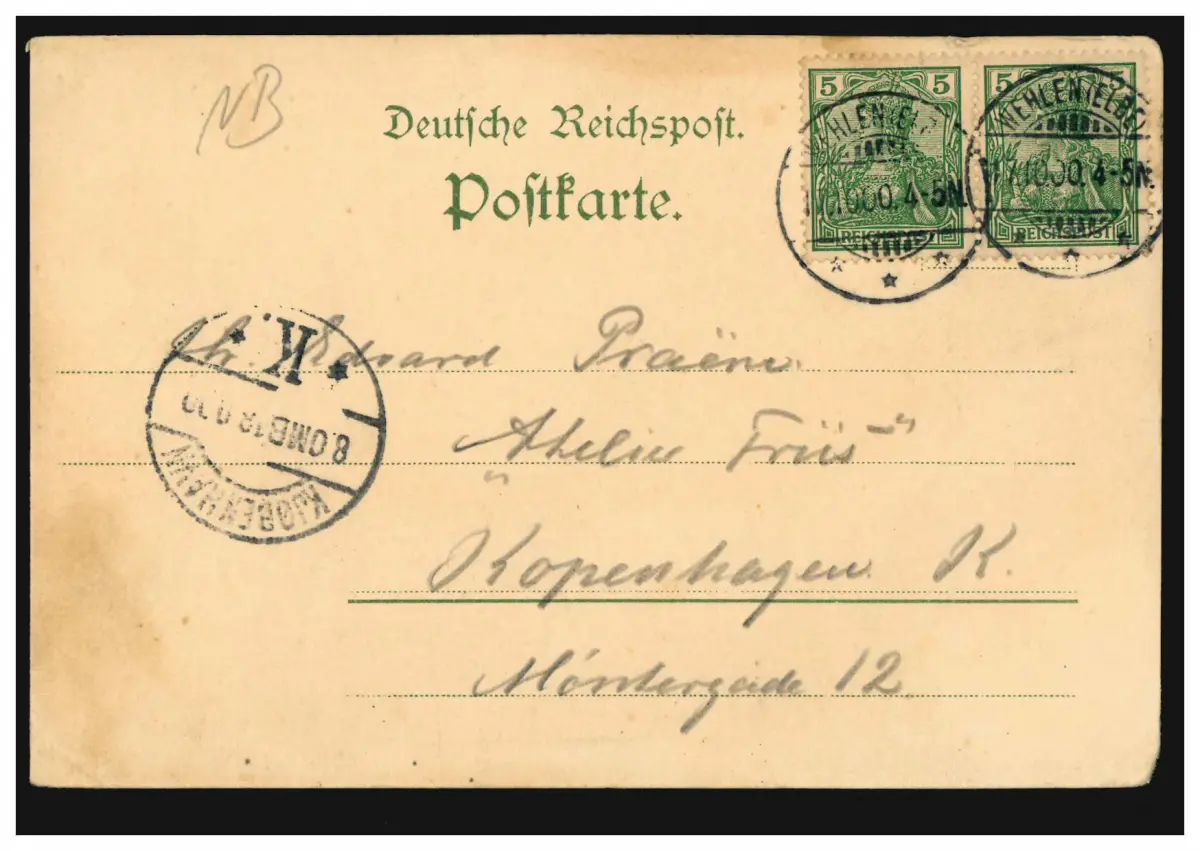 NB
Deutsche Reichspost.
Postkarte.
5 5
REICHSPOST REICHSPOST
WEHLEN (ELBE)
4-5N.
WEHLEN (ELBE)
17.10.00. 4-5N.
K.
8.OMB
KJØBENHAVN
Hr. Edvard Praëm
"Atelier Friis"
Kopenhagen K.
Möntergade 12